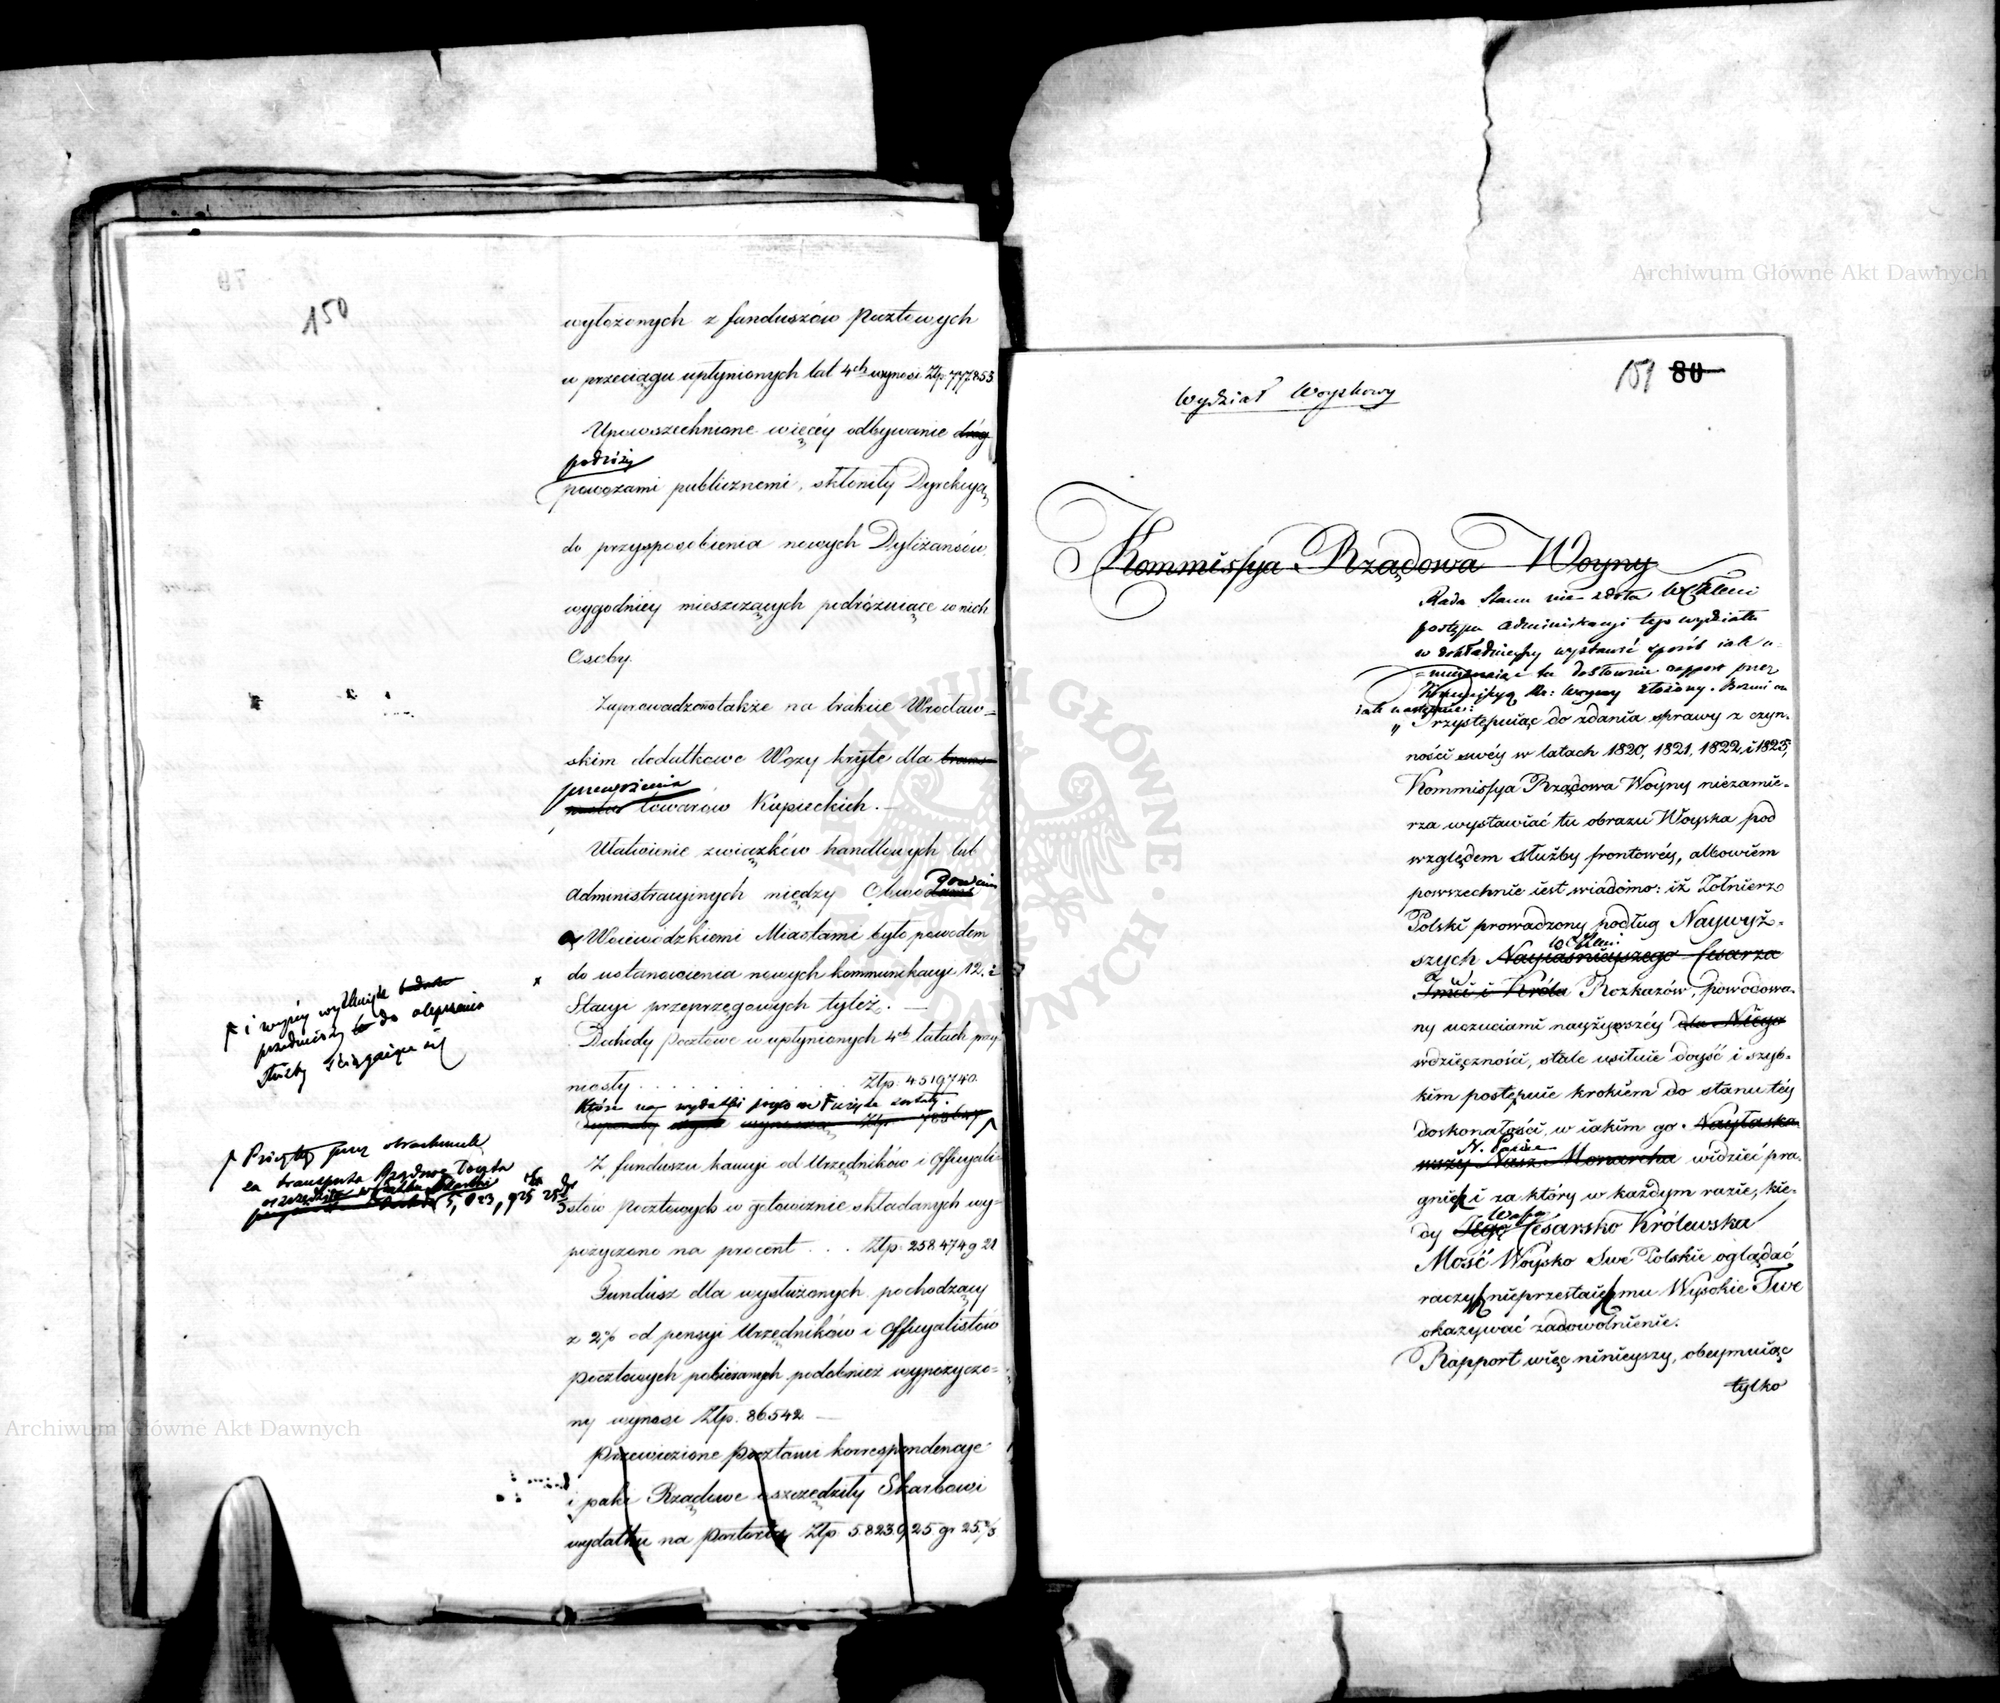 150
wyłożonych z funduszów Pocztowych
w przeciągu upłynionych lat 4ch wynosi Złp. 777853
Upowszechnione więcéy odbywanie dróg
podróży
powozami publicznemi, skłoniły Dyrekcyą
do przysposobienia nowych Dyliżansów,
wygodniey mieszczących podróżuiące w nich
Osoby.
Zaprowadzono także na trakcie Wrocław=
skim dodatkowe Wozy kryte dla trans
przewożenia
towarów Kupieckich. —
Ułatwienie związków handlowych lub
administracyjnych między Obwodowemi
a Woiewódzkiemi Miastami było powodem
do ustanowienia nowych kommunikacyi 12. i
Stacyi przeprzęgowych tyleż. —
Dochody Pocztowe w upłynionych 4ch latach przy
niosły . . . . . . . Złp. 4519740.
Które na wydatki użyte zostały.
wynosi Złp. 783647
Z funduszu kaucyi od Urzędników i Officyali-
stów Pocztowych w gotowiznie składanych wy=
pożyczono na procent . . . Złp. 258.474 g 21
Fundusz dla wysłużonych pochodzący
z 2% od pensyi Urzędników i Officyalistów
Pocztowych pobieranych podobnież wypożyczo-
ny wynosi Złp. 86542 —
Przewiezione Pocztami korrespondencye
i paki Rządowe oszczędziły Skarbowi
wydatku na Portorya Złp 5.823.925 gr 25 2/3
i więcéy
przedmioty do ulepszenia
służby ściągaiące się
Przyjęty przy obrachunku
za transporta Rządowe Poczta
5,823,925 25 2/3
151 80
Wydział Woyskowy
Kommissya Rządowa Woyny
Rada Stanu nie zdoła WCKMci
postępu administracyi tego wydziału
w dokładnieyszy wystawić sposób iak u-
=mieszczaiąc tu dosłownie rapport przez
Kommissyą Rz: Woyny złożony. Brzmi on
iak następuie:
„Przystępuiąc do zdania sprawy z czyn-
ności swéy w latach 1820, 1821, 1822, i 1823,
Kommissya Rządowa Woyny niezamie-
rza wystawiać tu obrazu Woyska pod
względem służby frontowéy, albowiem
powszechnie iest wiadomo: iż Żołnierz
Polski prowadzony podług Naywyż-
WCKMci
szych Nayiaśnieyszego Cesarza
Jmci i Króla Rozkazów, powodowa-
ny uczuciami nayżywszéy dla Niego
wdzięczności, stale usiłuie doyść i szyb-
kim postępuie krokiem do stanu téy
doskonałości, w iakim go Nayłaska-
N. Panie
wszy Nasz Monarcha widzieć pra-
gnie i za który w każdym razie, kie-
Wasza
dy Jego Cesarsko Królewska
Mość Woysko Swe Polskie oglądać
raczy, nieprzestaie mu Wysokie Twe
okazywać zadowolnienie.
Rapport więc ninieyszy, obeymuiąc
tylko
Archiwum Główne Akt Dawnych
Archiwum Główne Akt Dawnych
ARCHIWUM GŁÓWNE AKT DAWNYCH